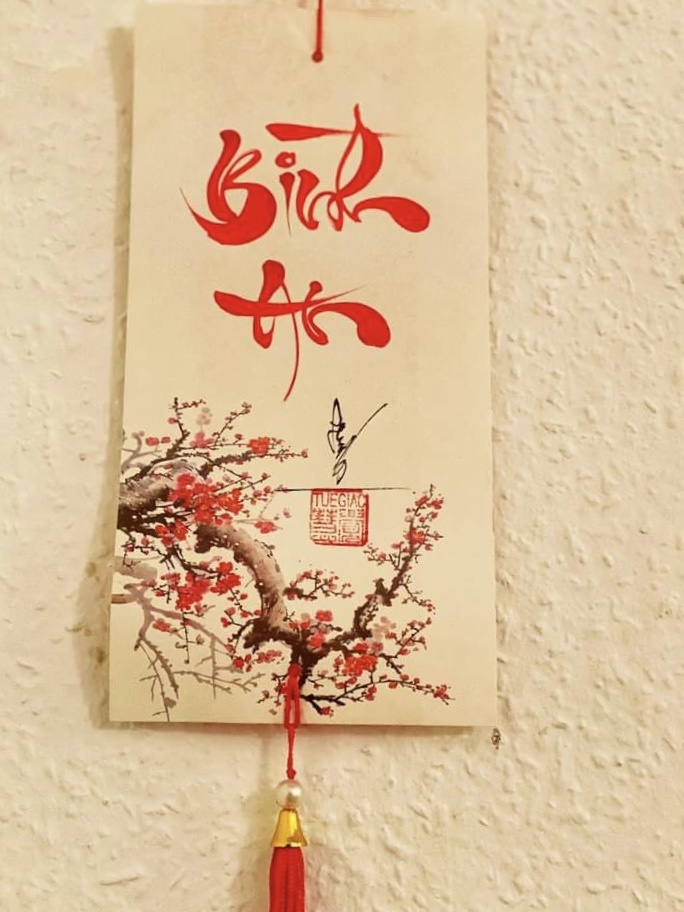 Bình
An
TUEGIAC
慧覺